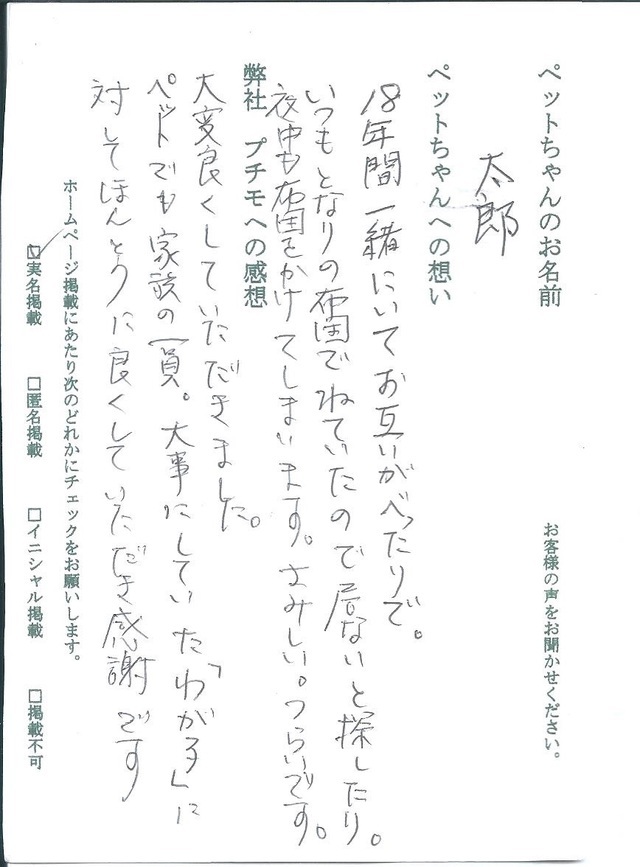 ペットちゃんのお名前
お客様の声をお聞かせください。
太郎
ペットちゃんへの想い
18年間一緒にいてお互いがべったりで。
いつもとなりの布団でねていたので居ないと探したり。
夜中も布団をかけてしまいます。さみしい。つらいです。
弊社 プチモへの感想
大変良くしていただきました。
ペットでも家族の一員。大事にしていた「わが子」に
対してほんとうに良くしていただき感謝です
ホームページ掲載にあたり次のどれかにチェックをお願いします。
☑実名掲載 □匿名掲載 □イニシャル掲載 □掲載不可